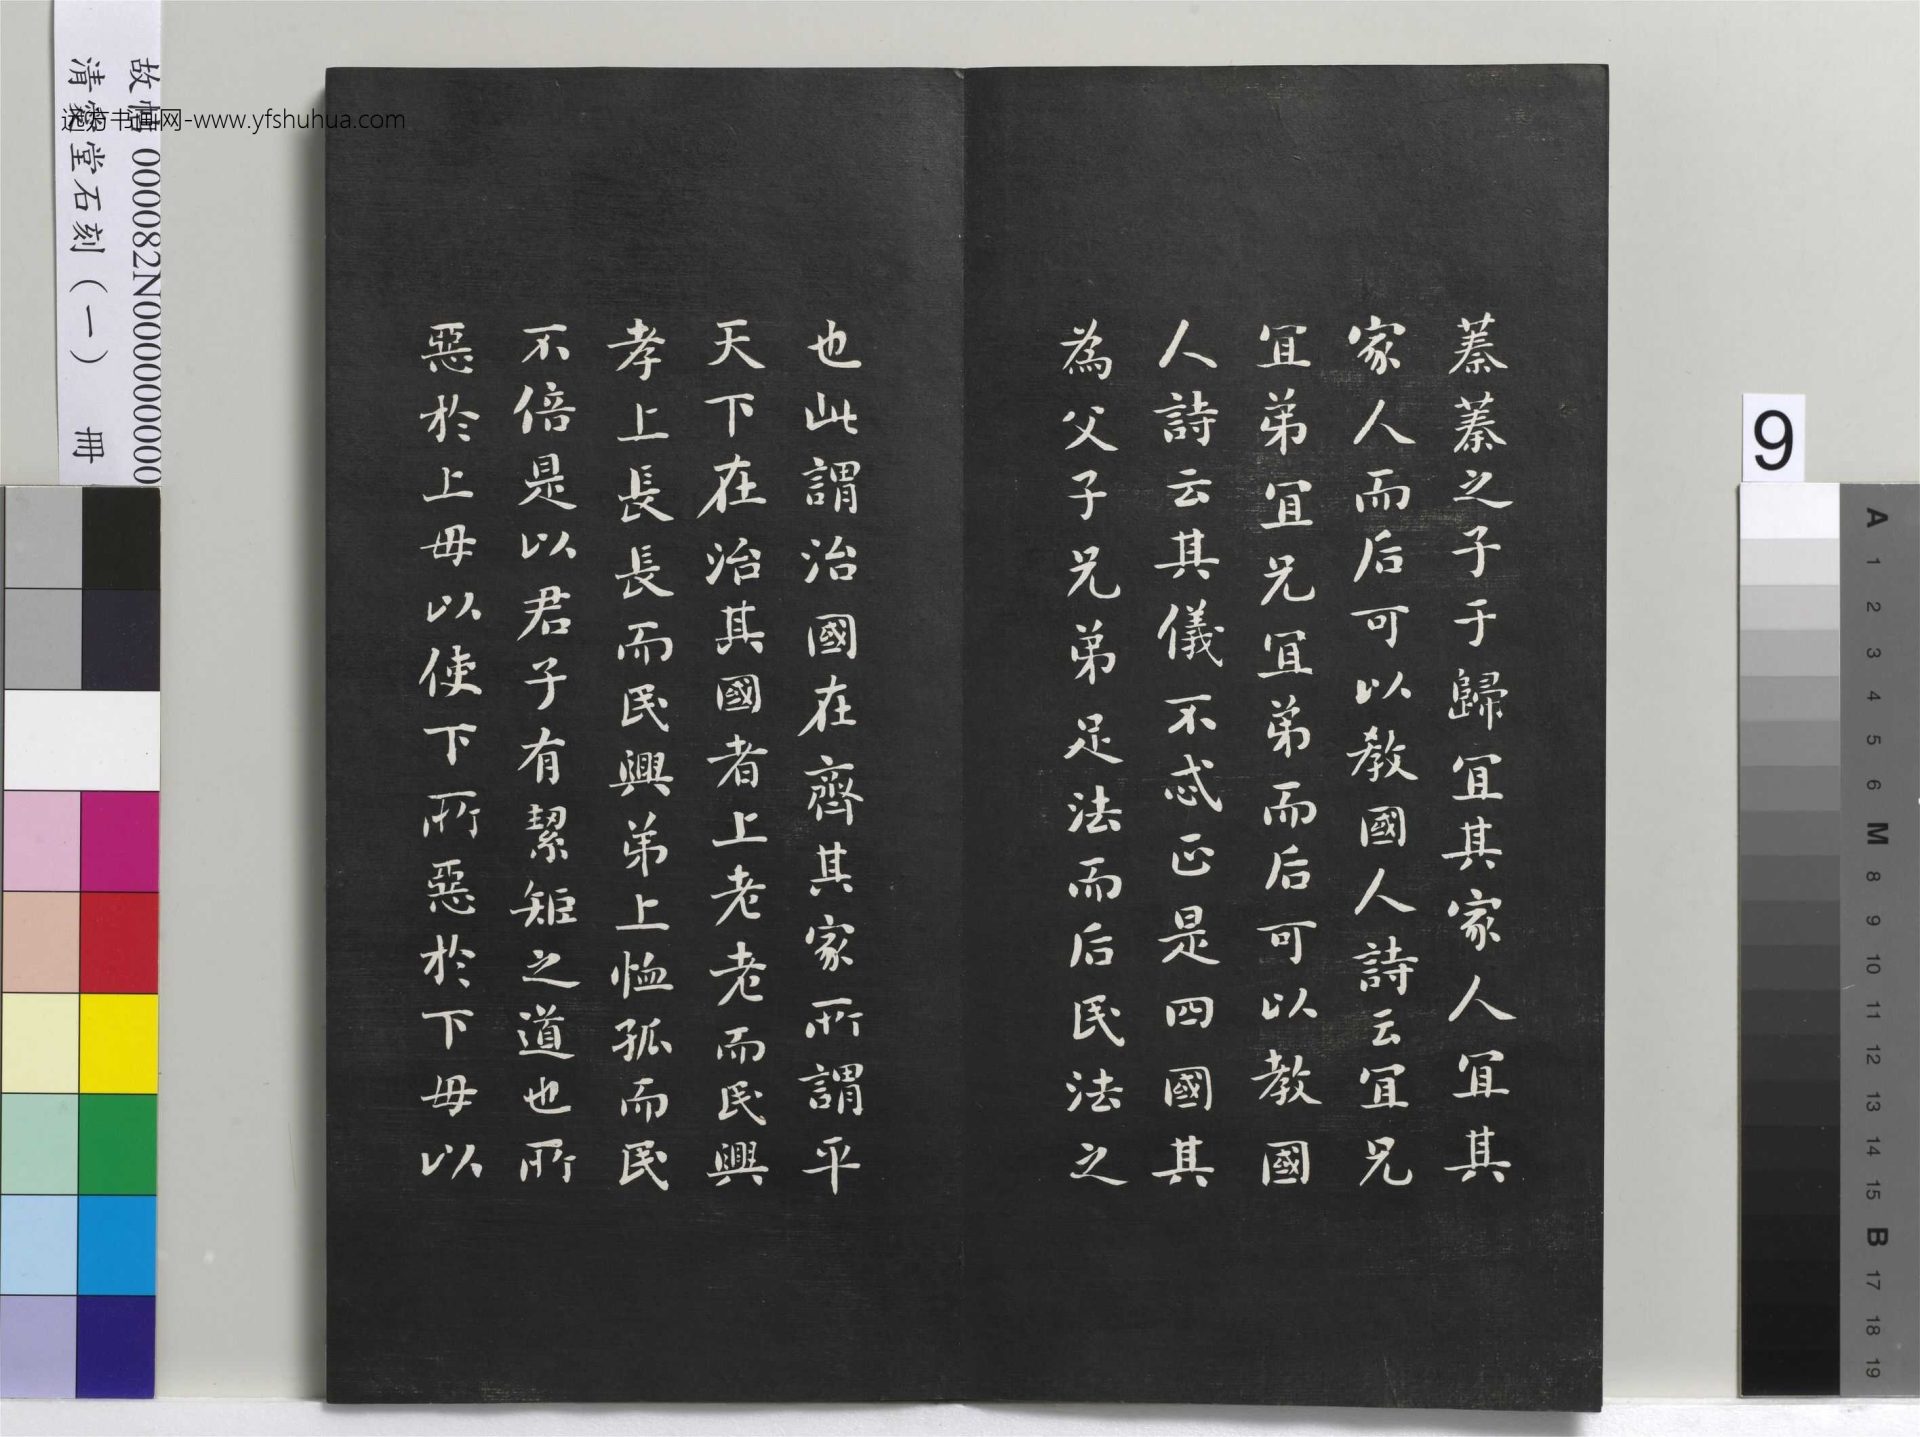 蓁蓁之子于歸宜其家人宜其
家人而后可以教國人詩云宜兄
宜弟宜兄宜弟而后可以教國
人詩云其儀不忒正是四國其
為父子兄弟足法而后民法之
也此謂治國在齊其家所謂平
天下在治其國者上老老而民興
孝上長長而民興弟上恤孤而民
不倍是以君子有絜矩之道也所
惡於上毋以使下所惡於下毋以
故帖 000082N000000000
清 堂石刻（一） 冊
远方书画网-www.yfshuhua.com
9
A
1
2
3
4
5
6
M
8
9
10
11
12
13
14
15
B
17
18
19